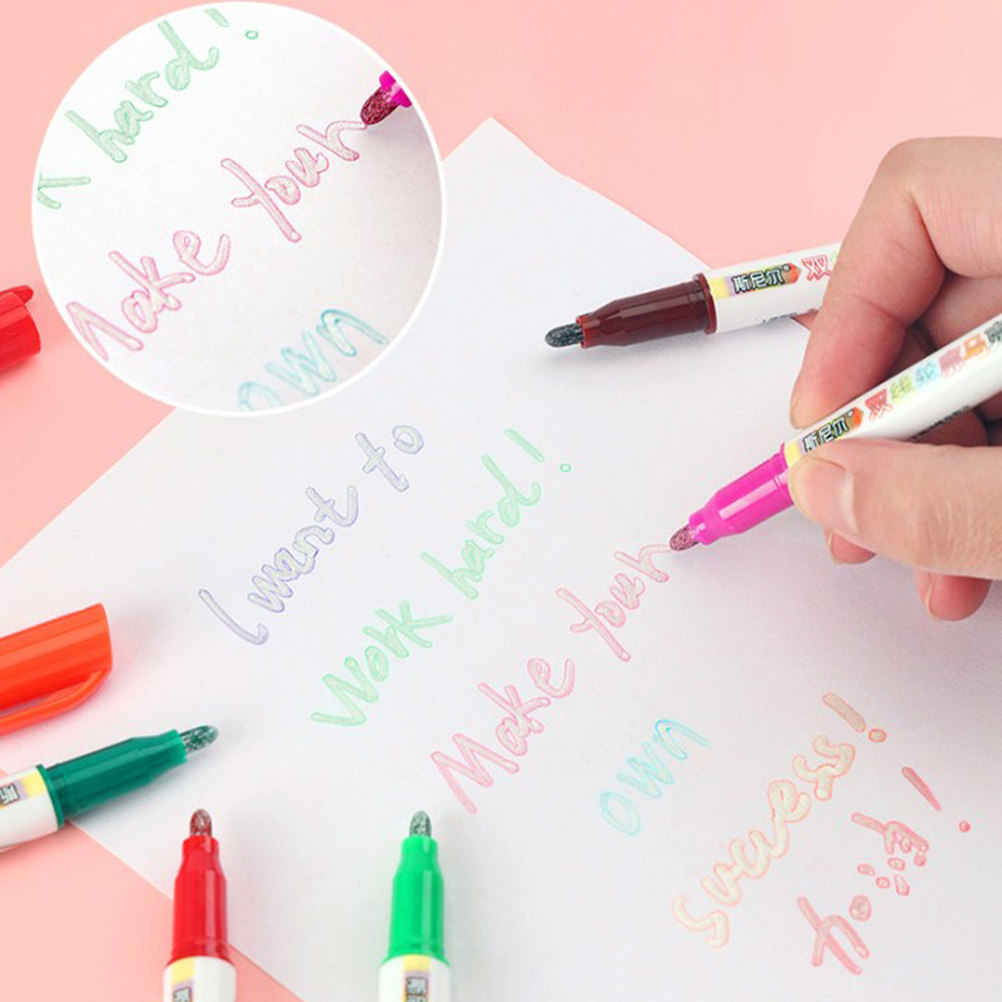 hard!
Make your
own
斯尼尔 双
斯尼尔 双线轮廓
I want to
Work hard!
Make your
own
Success!
加油!
斯
斯
斯